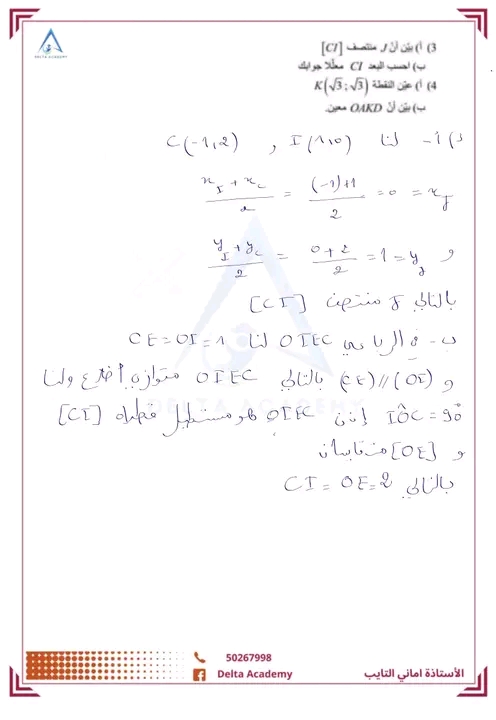 DELTA ACADEMY
3) أ) بيّن أنّ J منتصف [CI]
ب) احسب البعد CI معلّلا جوابك
4) أ) عيّن النقطة K(√3 ; √3)
ب) بيّن أنّ OAKD معين.
3) أ- لنا I(1,0) و C(-1,2)
(x_I + x_C)/2 = ((-1)+1)/2 = 0 = x_J
و (y_I + y_C)/2 = (0+2)/2 = 1 = y_J
بالتالي J منتصف [CI]
ب- في الرباعي OIEC لنا CE=OI=1
و (OI)//(CE) بالتالي OIEC متوازي أضلاع ولنا
IÔC=90° إذن OIEC هو مستطيل قطراه [CI]
و [OE] متقايسان
بالتالي CI=OE=2
DELTA ACADEMY
50267998
Delta Academy
الأستاذة اماني التايب